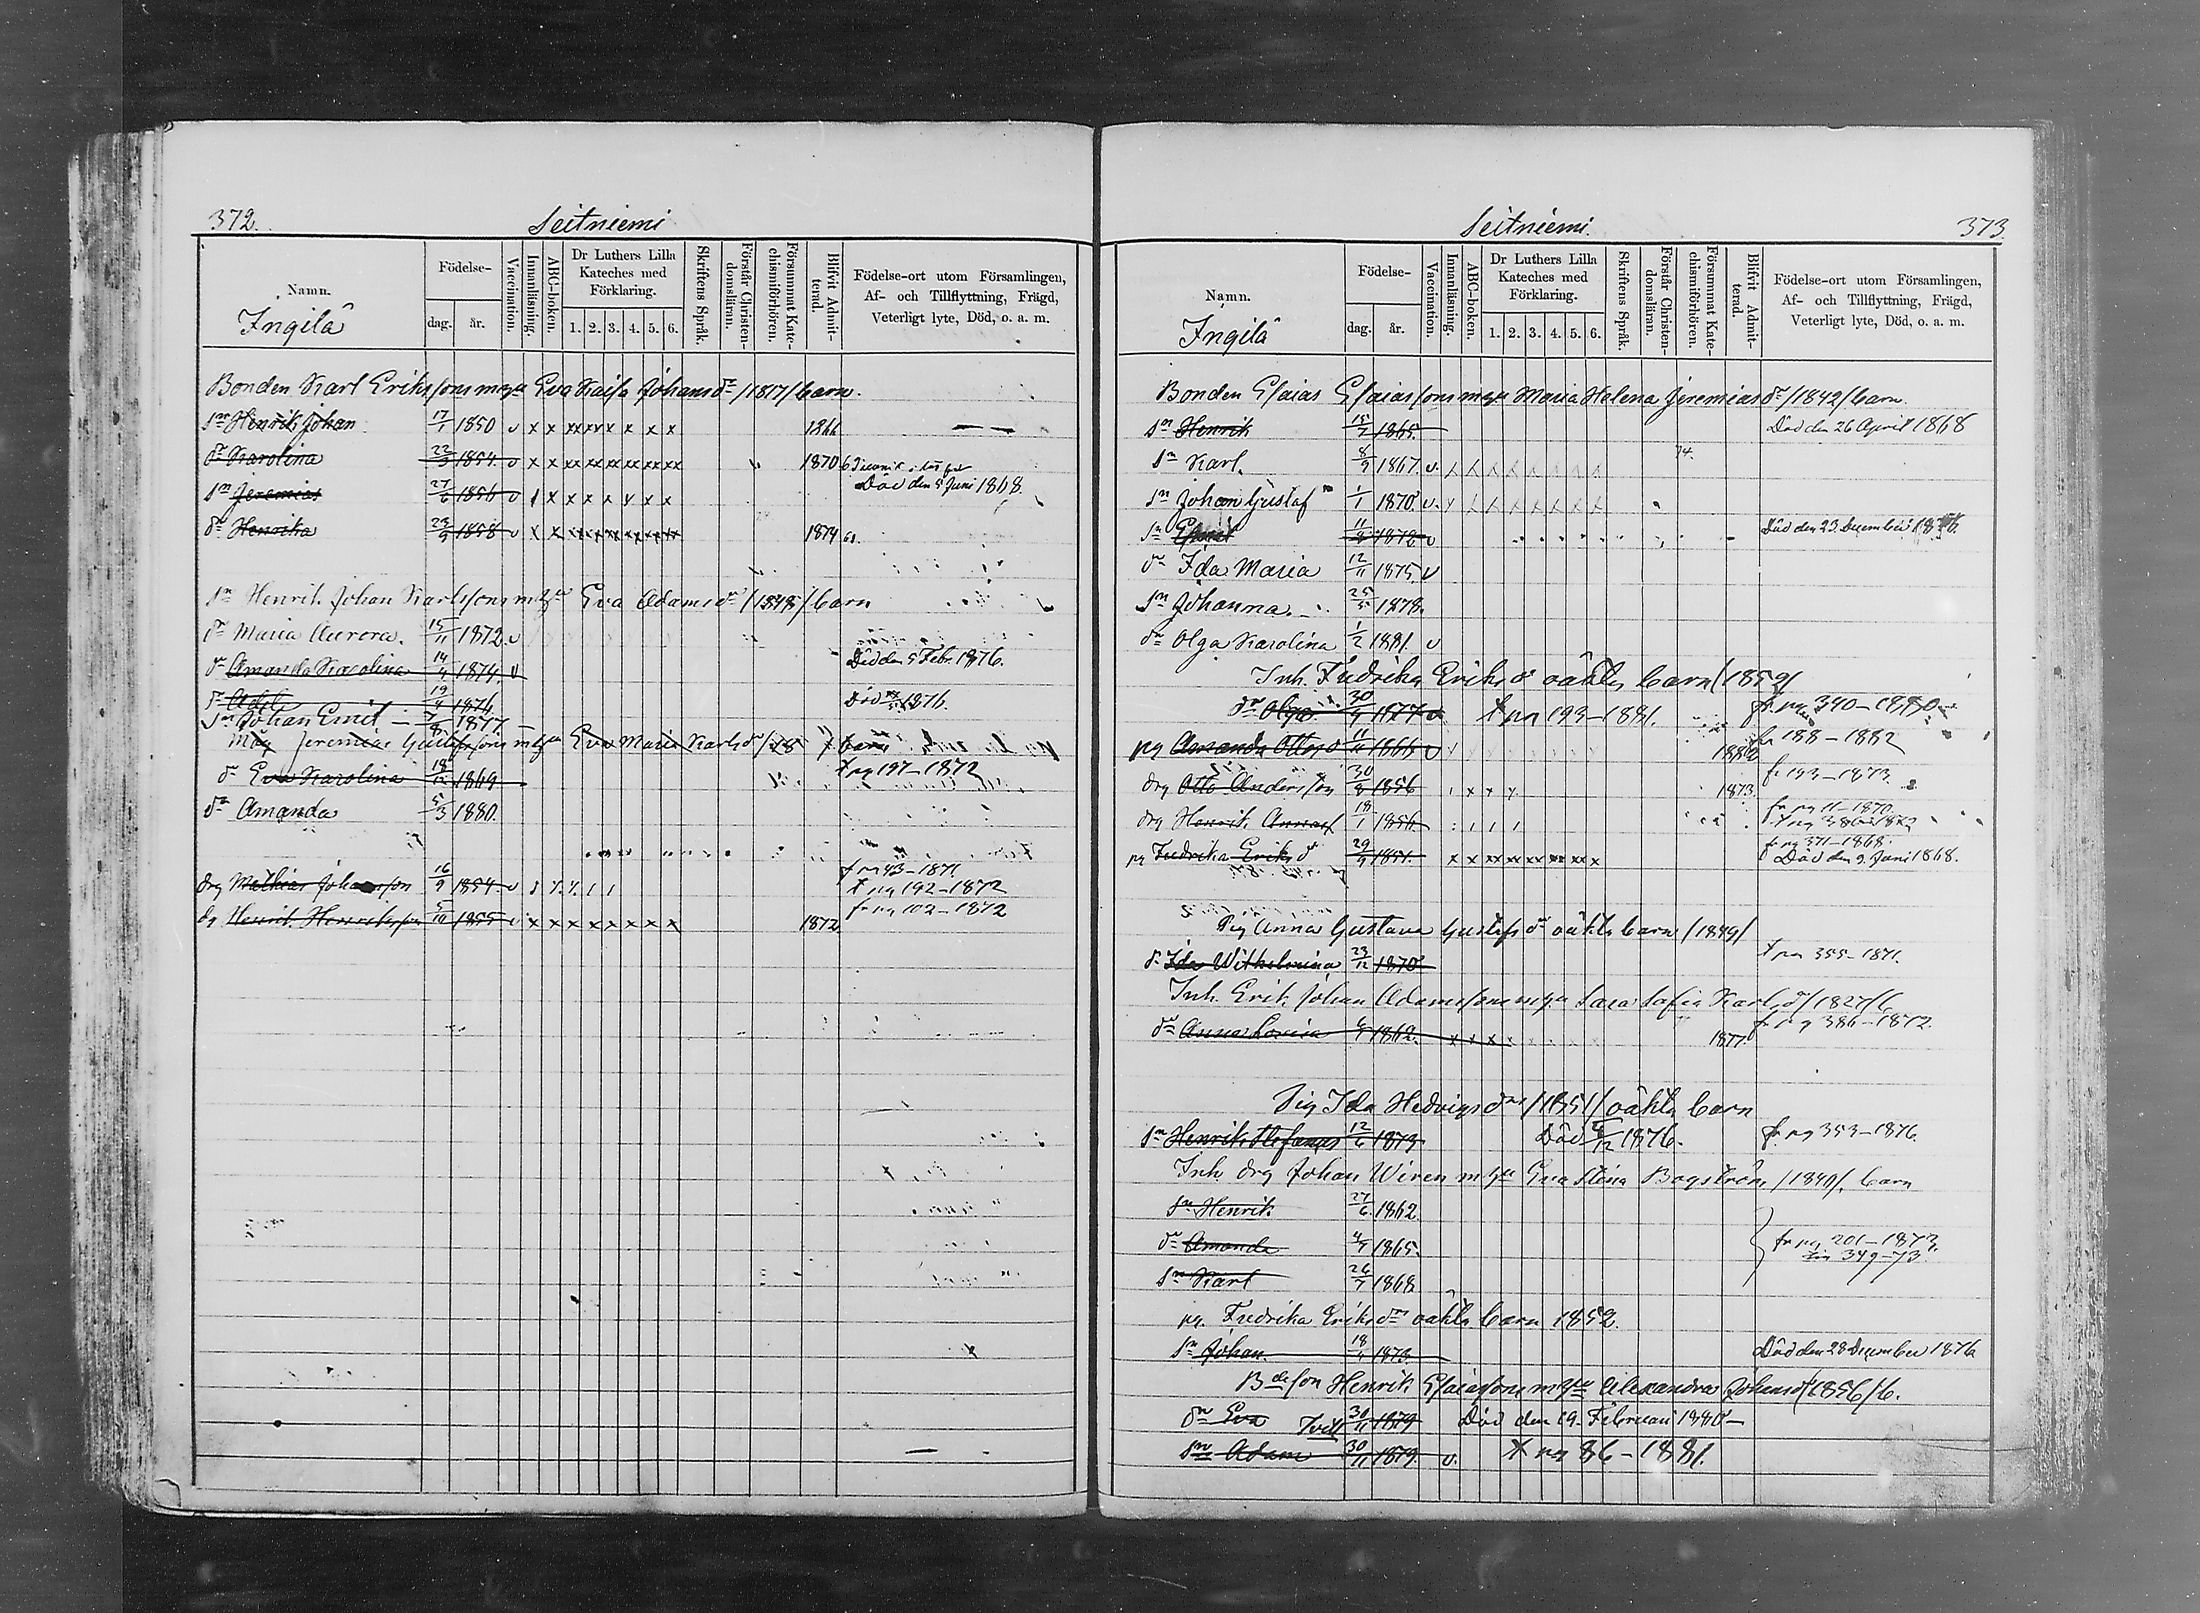 372.
Seitniemi
Namn.
Ingilä
Födelse-
dag.
år.
Vaccination.
Innanläsning.
ABC-boken.
Dr Luthers Lilla
Kateches med
Förklaring.
1. 2. 3. 4. 5. 6.
Skriftens Språk.
Förstår Christen-
domsläran.
Försummat Kate-
chismiförhören.
Blifvit Admit-
terad.
Födelse-ort utom Församlingen,
Af- och Tillflyttning, Frägd,
Veterligt lyte, Död, o. a. m.
Bonden Karl Erikssons m hu Eva Kaisa Johansdr /1817/ barn.
sn Henrik Johan 17/1 1850 v x x xx xx x x x x 1866
dr Karolina 22/3 1854. v x x xx xx xx xx xx xx 1870
sn Jeremias 27/6 1856 v x x x x x x x Död den 5 Juni 1868.
dr Henrika 23/9 1858 v x x 1874
sn Henrik Johan Karlssons m hu Eva Adamsdr /1848/ barn
dr Maria Aurora. 15/11 1872. v
dr Amanda Karolina 14/4 1874. v Död den 5 Febr. 1876.
dr Adel 19/4 1876. Död 1876.
sn Johan Emil 1877.
Måg Jeremias Gustafssons m hu Eva Maria Karlsdr barn
dr Eva Karolina 18/12 1869 t pg 197-1872
dr Amanda 5/3 1880.
fr pg 43-1871.
drg Mathias Johansson 16/9 1854. v t pg 192-1872
fr pg 102-1872
dg Henrik Henriksson 5/10 1855 v x x x x x x x x 1872
373
Seitniemi.
Namn.
Ingilä
Födelse-
dag.
år.
Vaccination.
Innanläsning.
ABC-boken.
Dr Luthers Lilla
Kateches med
Förklaring.
1. 2. 3. 4. 5. 6.
Skriftens Språk.
Förstår Christen-
domsläran.
Försummat Kate-
chismiförhören.
Blifvit Admit-
terad.
Födelse-ort utom Församlingen,
Af- och Tillflyttning, Frägd,
Veterligt lyte, Död, o. a. m.
Bonden Esaias Esaiassons m hu Maria Helena Jeremiasdr /1842/ barn.
sn Henrik 15/7 1865. Död den 26 April 1868
sn Karl. 8/9 1867. v. 74.
sn Johan Gustaf 1/1 1870. v.
sn 1872 v Död den 23 December
dr Ida Maria 12/11 1875. v
sn Johanna. 25/5 1878.
dr Olga Karolina 1/2 1881. v
Inh. Fredrika Eriksdr oäkta barn /1859/
dr Olga 30/9 1877 v t pg 193-1881. fr pg 340-1880
pg Amanda Ottosdr 11/11 1866 v 1882 fr 188-1882
drg Otto Andersson 30/8 1856 x x 1873 fr 193-1873
drg Henrik 18/1 1856 fr pg 11-1870.
fr pg 371-1868.
pg Fredrika Eriksdr 29/9 1851. x x xx xx xx xx xx x Död den 9. Juni 1868.
Pig Anna Gustava Gustafsdr oäkta barn /1849/
dr Ida Wilhelmina 23/12 1870 t pg 355-1871.
Inh. Erik Johan Adamssons m hu Sara Sofia Karlsdr /1827/ b
dr Anna Lovisa 1862. x x x x 1877. fr pg 386-1872.
Pig Ida Hedvigsdrs /1851/ oäkta barn
sn Henrik Stefanus 12/6 1873 Död 1876. fr pg 353-1876.
Inh. drg Johan Wiren m hu Eva Stina Bagström /1840/. barn
sn Henrik 27/6 1862
dr Amanda 4/7 1865. fr pg 201-1873.
349-73
sn Karl 26/7 1868
pg. Fredrika Eriksdrs oäkta barn 1852.
sn Johan. 1873. Död den 28 December 1876
Bdeson Henrik Esaiassons m hu Alexandra Johansdr /1856/ b.
dr Eva Tvill 30/11 1879 Död den 19. Februari 1880
sn Adam 30/11 1879. v. t pg 86-1881.